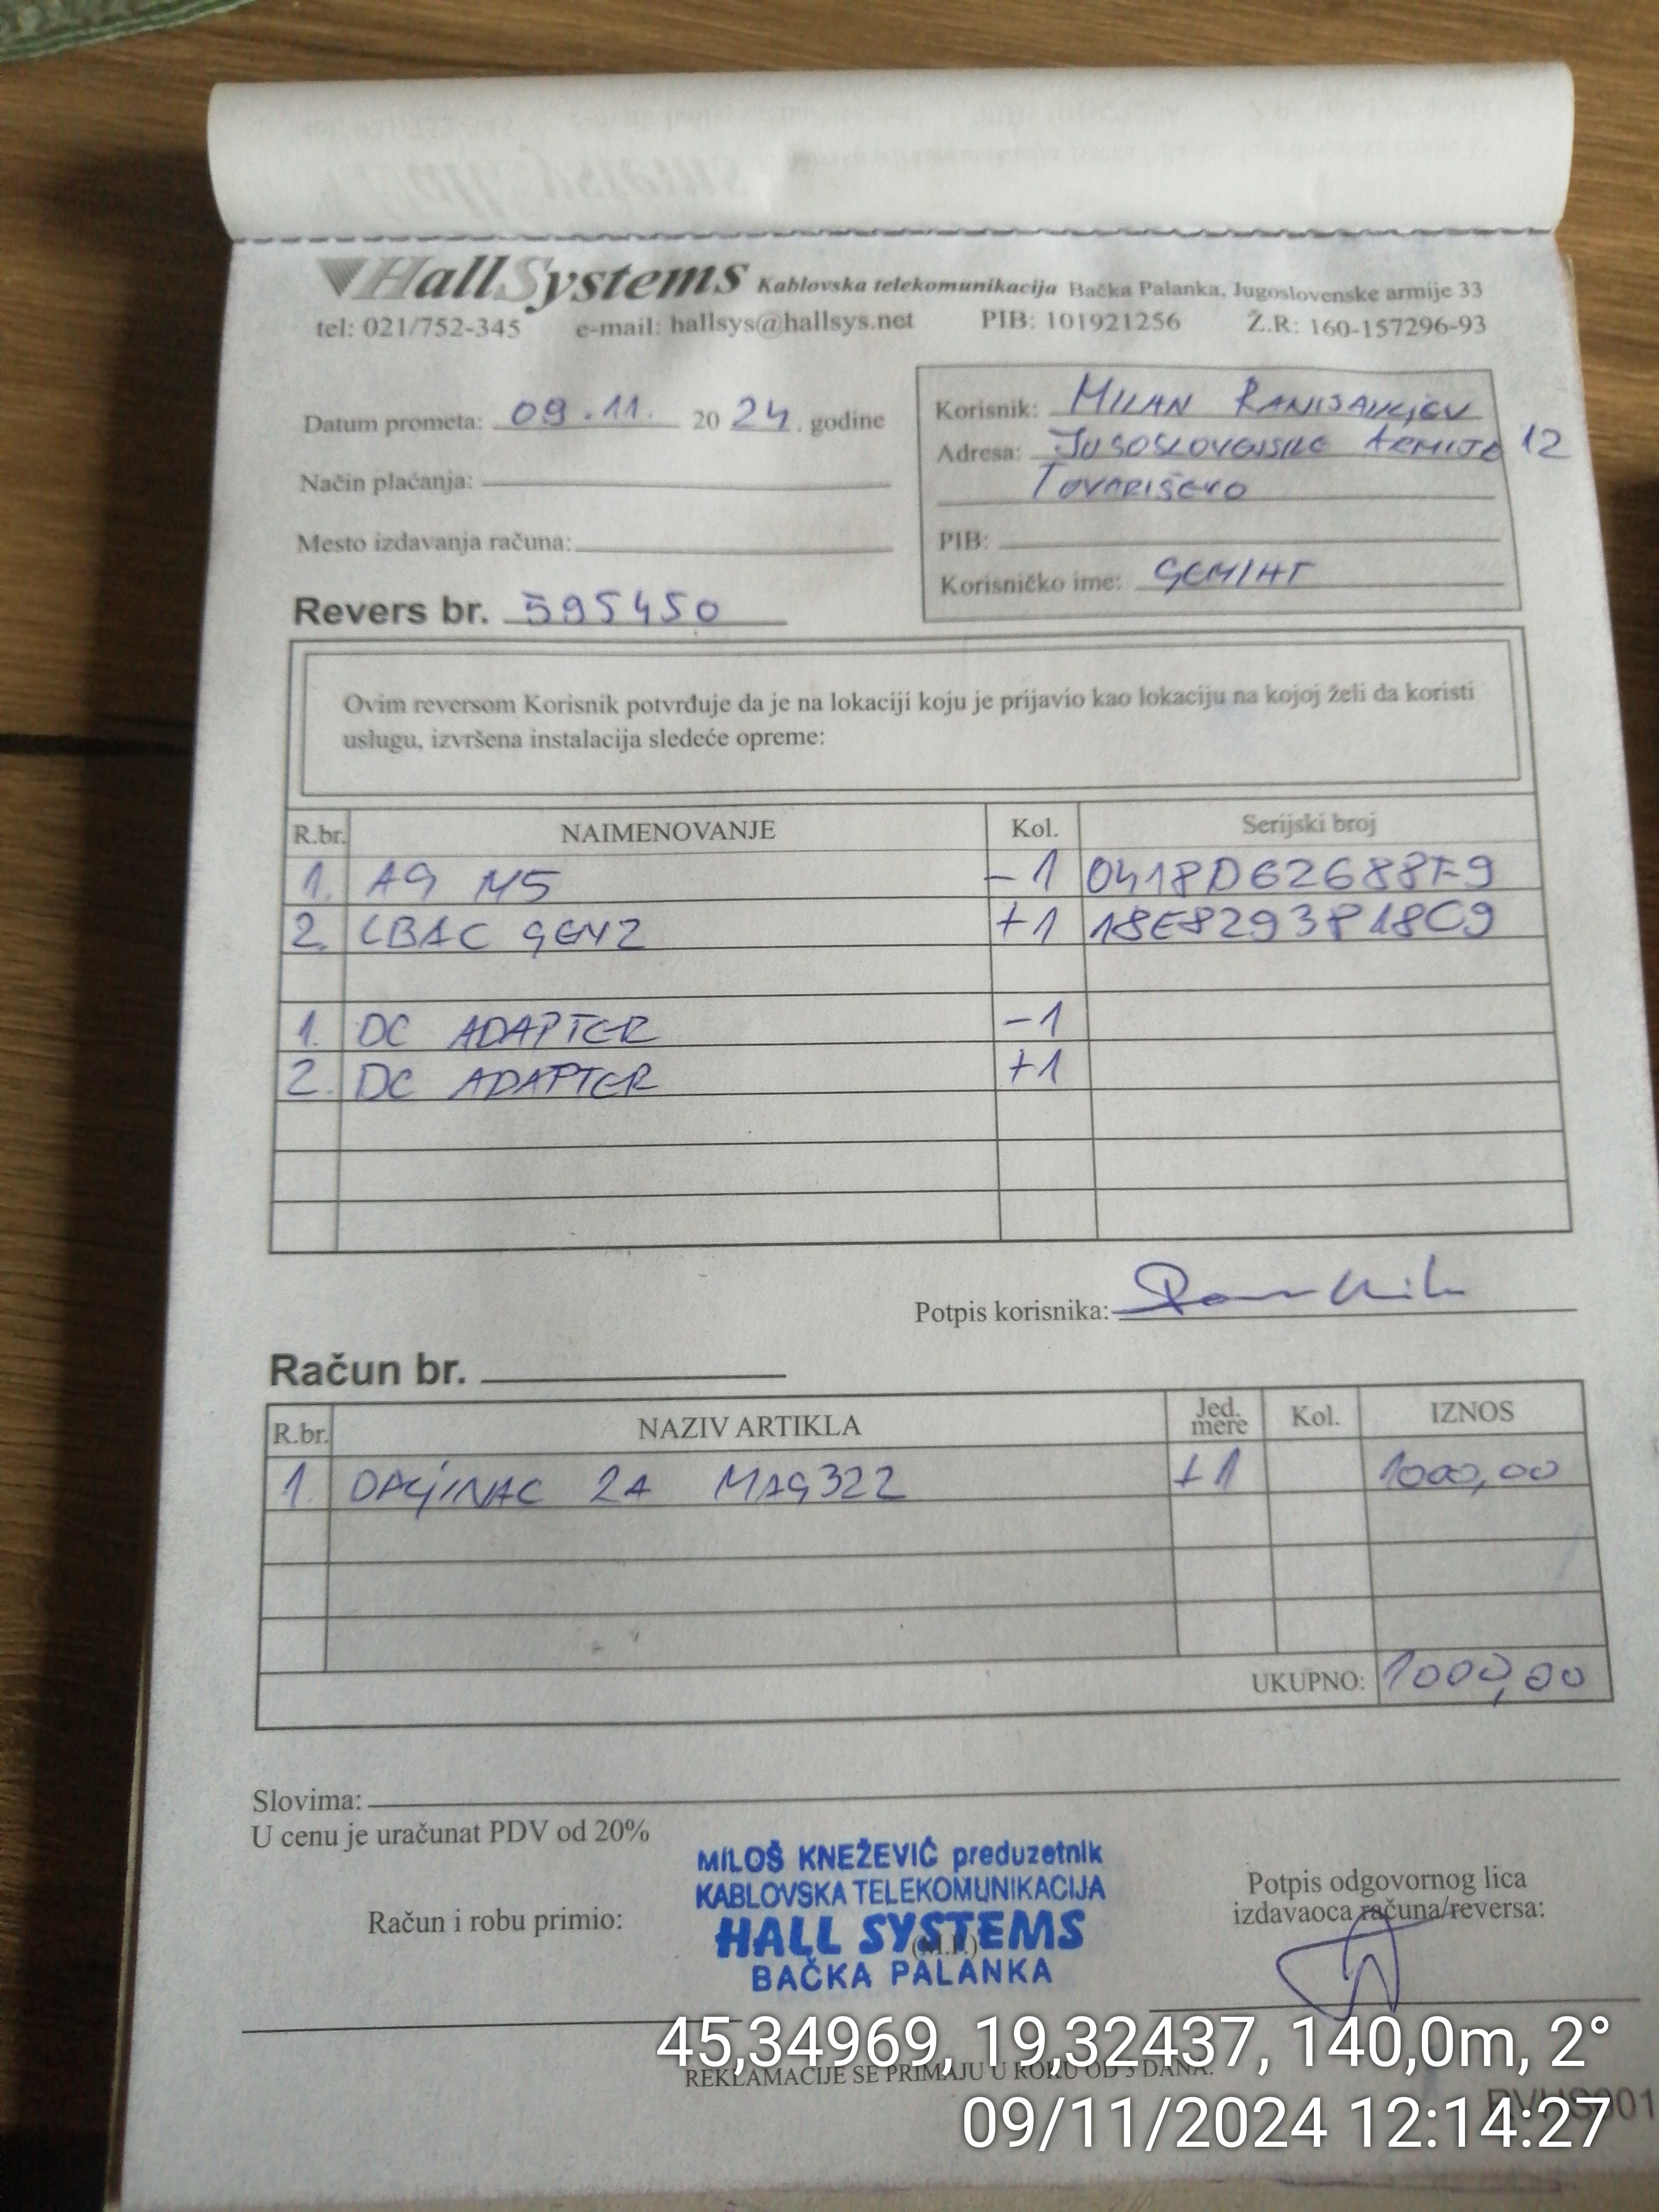 HallSystems Kablovska telekomunikacija Bačka Palanka, Jugoslovenske armije 33
tel: 021/752-345 e-mail: hallsys@hallsys.net PIB: 101921256 Ž.R: 160-157296-93
Datum prometa: 09.11. 2024. godine
Način plaćanja:
Mesto izdavanja računa:
Revers br. 595450
Korisnik: MILAN RANISAVLJEV
Adresa: JUGOSLOVENSKE ARMIJE 12
TOVARIŠEVO
PIB:
Korisničko ime:
Ovim reversom Korisnik potvrđuje da je na lokaciji koju je prijavio kao lokaciju na kojoj želi da koristi
uslugu, izvršena instalacija sledeće opreme:
R.br. NAIMENOVANJE Kol. Serijski broj
1. AG M5 -1 0418D62688F9
2. LBAC GEN2 +1 18E8293P18C9
1. DC ADAPTER -1
2. DC ADAPTER +1
Potpis korisnika:
Račun br.
R.br. NAZIV ARTIKLA Jed. mere Kol. IZNOS
1. DALJINAC ZA MAG322 +1 1000,00
UKUPNO: 1000,00
Slovima:
U cenu je uračunat PDV od 20%
Račun i robu primio:
MILOŠ KNEŽEVIĆ preduzetnik
KABLOVSKA TELEKOMUNIKACIJA
HALL SYSTEMS
(M.P.)
BAČKA PALANKA
Potpis odgovornog lica
izdavaoca računa/reversa:
45,34969, 19,32437, 140,0m, 2°
REKLAMACIJE SE PRIMAJU U ROKU OD 5 DANA.
09/11/2024 12:14:27